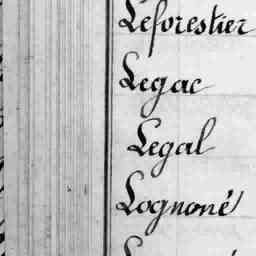 Leforestier
Legac
Legal
Lognoné